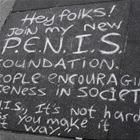 Hey folks!
JOIN MY NEW
P.E.N.I.S.
FOUNDATION.
PEOPLE ENCOURAGING
NICENESS IN SOCIETY
THIS, It's not hard
IF YOU MAKE IT
WAY."